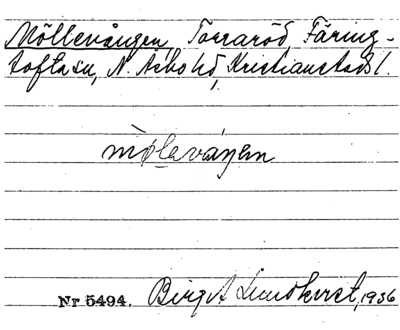 Möllevången, Torraröd, Färing-
tofta sn, N. Åsbo hd, Kristianstads l.
möllevåŋen
Nr 5494. Birgit Lundkvist, 1936